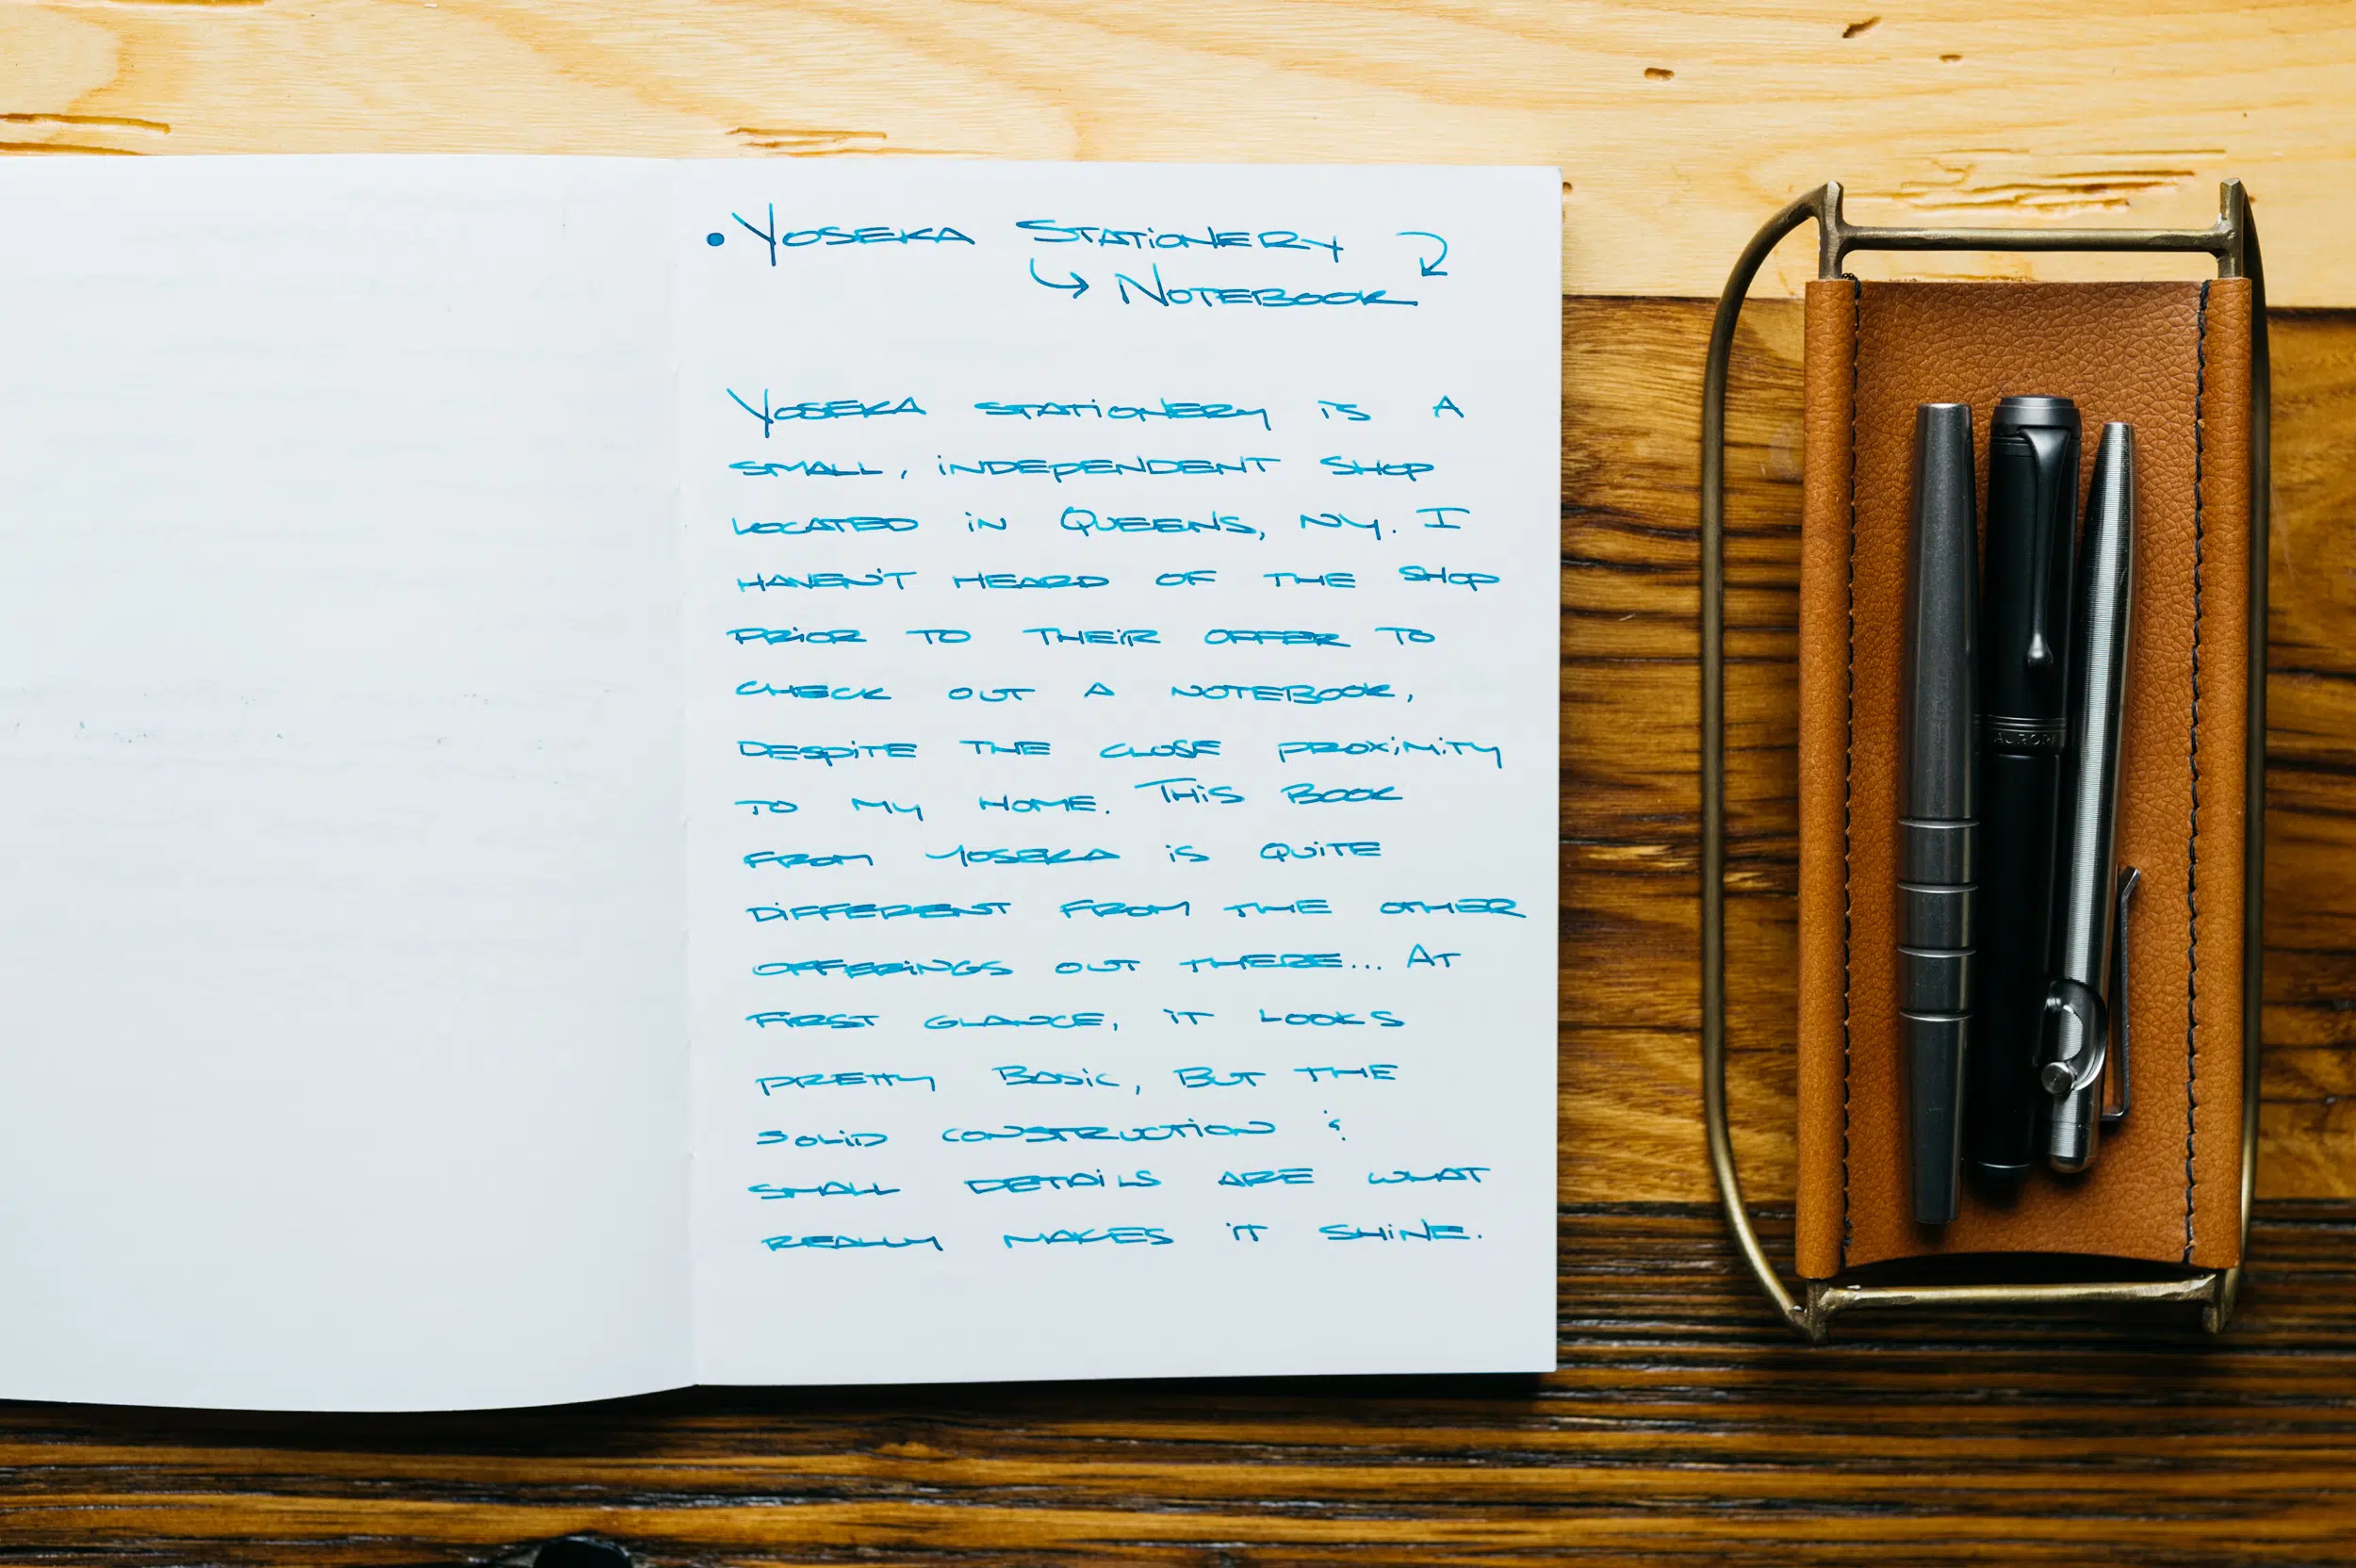 • Yoseka Stationery
↳ Notebook
Yoseka stationery is a
small, independent shop
located in Queens, NY. I
haven't heard of the shop
prior to their offer to
check out a notebook,
despite the close proximity
to my home. This book
from Yoseka is quite
different from the other
offerings out there... At
first glance, it looks
pretty basic, but the
solid construction &
small details are what
really makes it shine.
AURORA